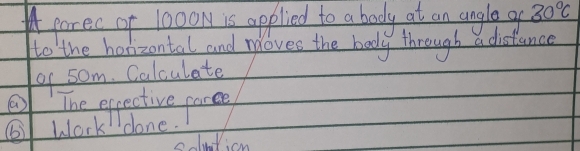 A forec of 1000N is applied to a body at an angle of 30°C
to the horizontal and moves the body through a distance
of 50m. Calculate
(a) The effective force
(b) Work done.
Solution